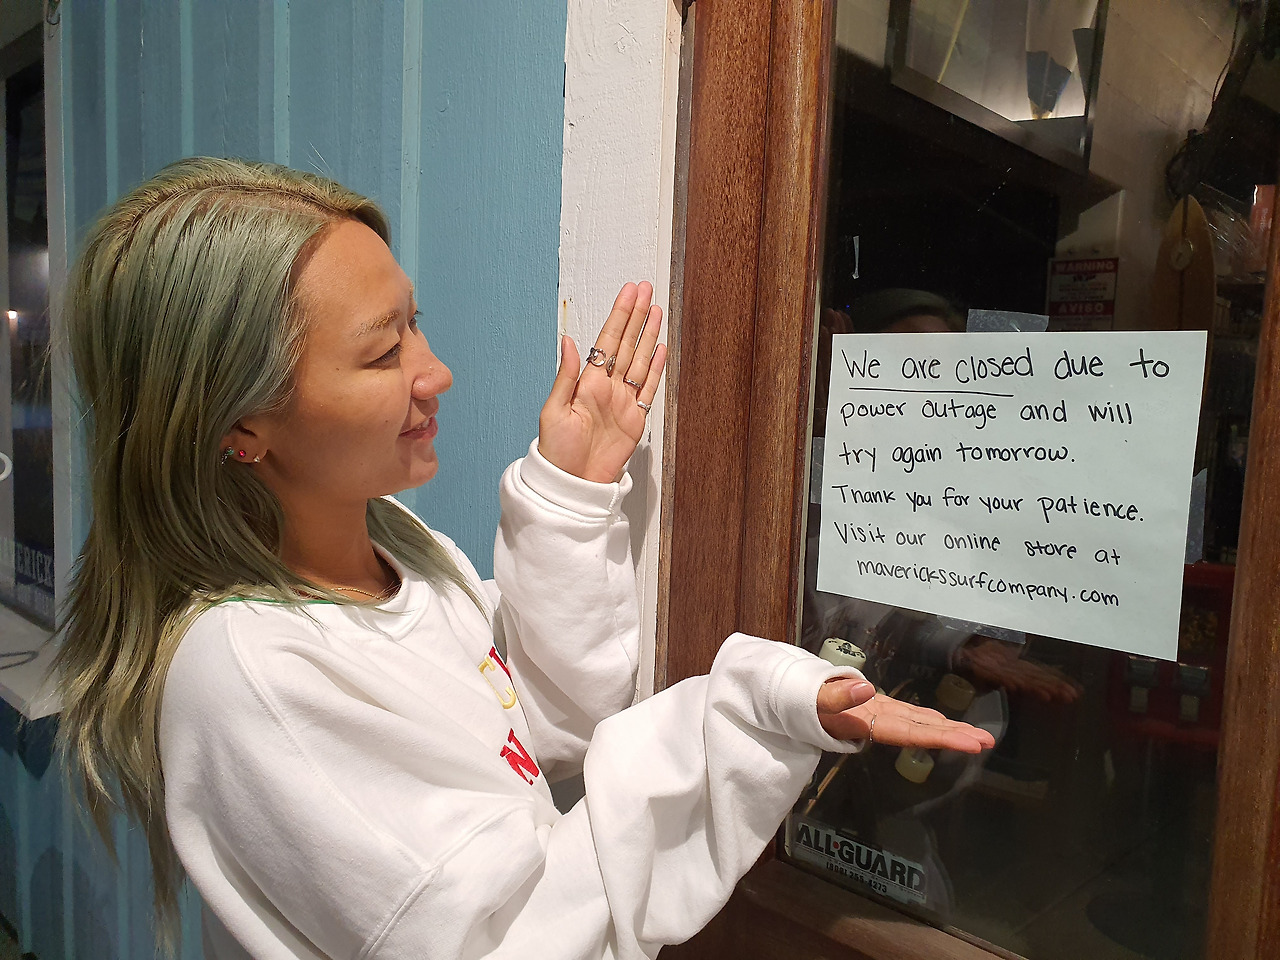 We are closed due to
power outage and will
try again tomorrow.
Thank you for your patience.
Visit our online store at
maverickssurfcompany.com
WARNING
AVISO
ALL·GUARD
N